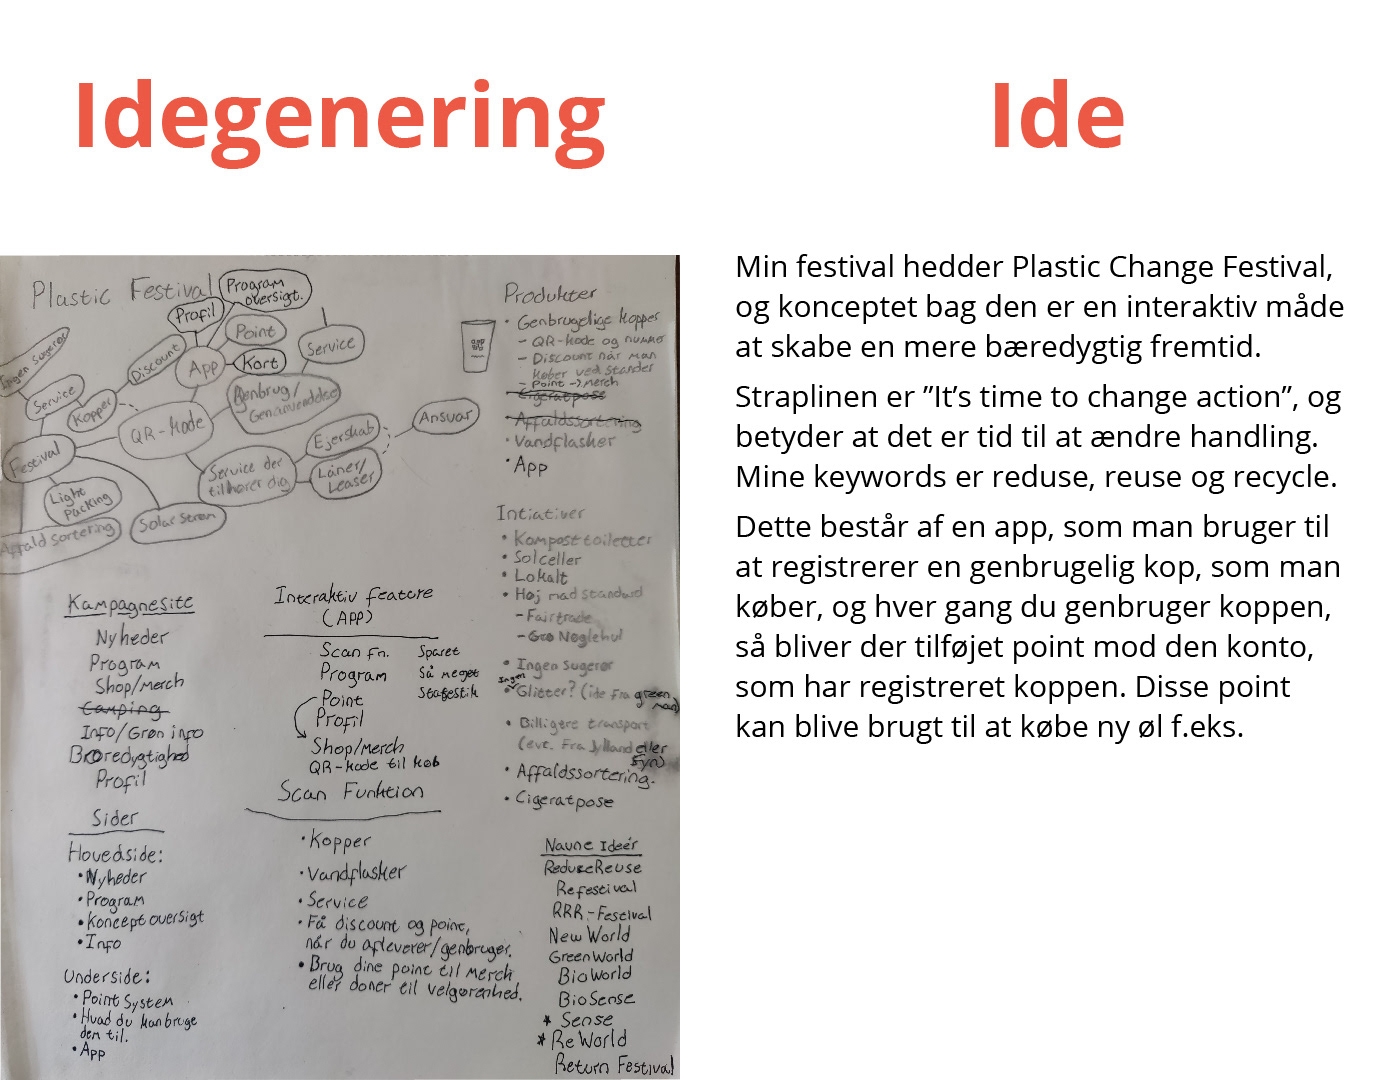 Idegenering
Plastic Festival
Program
oversigt.
Profil
Point
Service
Discount
App
Kort
Ingen Sugerør
Service
Kopper
Genbrug/
Genanvendelse
QR-Kode
Ansvar
Ejerskab
Festival
Service der
tilhører dig
Låner/
Leaser
Light
Packing
Solar Strøm
Affald sortering
Produkter
• Genbrugelige Kopper
- QR-kode og nummer
- Discount når man
køber ved stander
- Point -> Merch
Cigeratpose
• Affaldssortering
• Vandflasker
• App
Intiativer
• Komposttoiletter
• Solceller
• Lokalt
• Høj mad standard
- Fairtrade
- Grø Nøglehul
• Ingen Sugerør
Ingen
• Glitter? (ide fra green
man)
• Billigere transport
(evt. Fra Jylland eller
Fyn)
• Affaldssortering.
• Cigeratpose
Kampagnesite
Nyheder
Program
Shop/Merch
Camping
Info/Grøn info
Bæredygtighed
Profil
Sider
Hovedside:
• Nyheder
• Program
• Koncept oversigt
• Info
Underside:
• Point System
• Hvad du kan bruge
dem til.
• App
Interaktiv feature
(APP)
Scan fn. Sparet
Program Så meget
Point Stagestik
Profil
Shop/Merch
QR-kode til køb
Scan Funktion
• Kopper
• Vandflasker
• Service
• Få discount og point,
når du afleverer/genbruger.
• Brug dine point til Merch
eller doner til velgørenhed.
Navne Ideér
ReduceReuse
Refestival
RRR-Festival
New World
GreenWorld
BioWorld
BioSense
* Sense
* ReWorld
Return Festival
Ide
Min festival hedder Plastic Change Festival,
og konceptet bag den er en interaktiv måde
at skabe en mere bæredygtig fremtid.
Straplinen er ”It’s time to change action”, og
betyder at det er tid til at ændre handling.
Mine keywords er reduse, reuse og recycle.
Dette består af en app, som man bruger til
at registrerer en genbrugelig kop, som man
køber, og hver gang du genbruger koppen,
så bliver der tilføjet point mod den konto,
som har registreret koppen. Disse point
kan blive brugt til at købe ny øl f.eks.